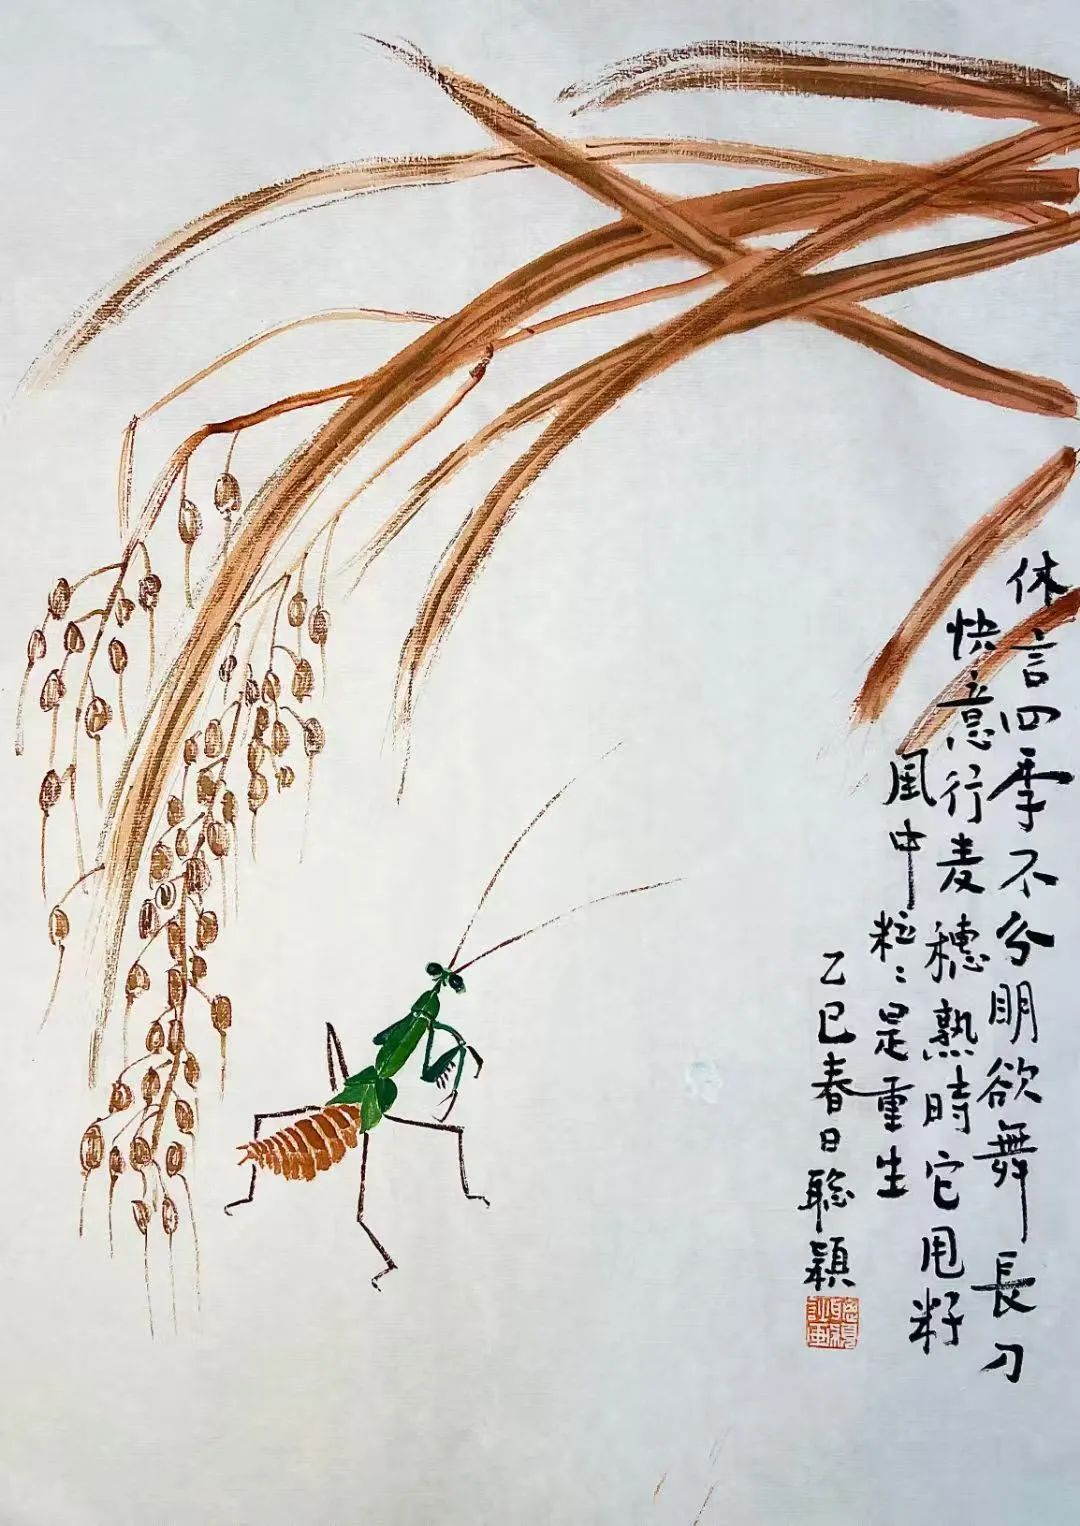 休言四季不分明欲舞長刀
快意行麦穗熟時它甩籽
風中粒〻是重生
乙巳春日聡穎